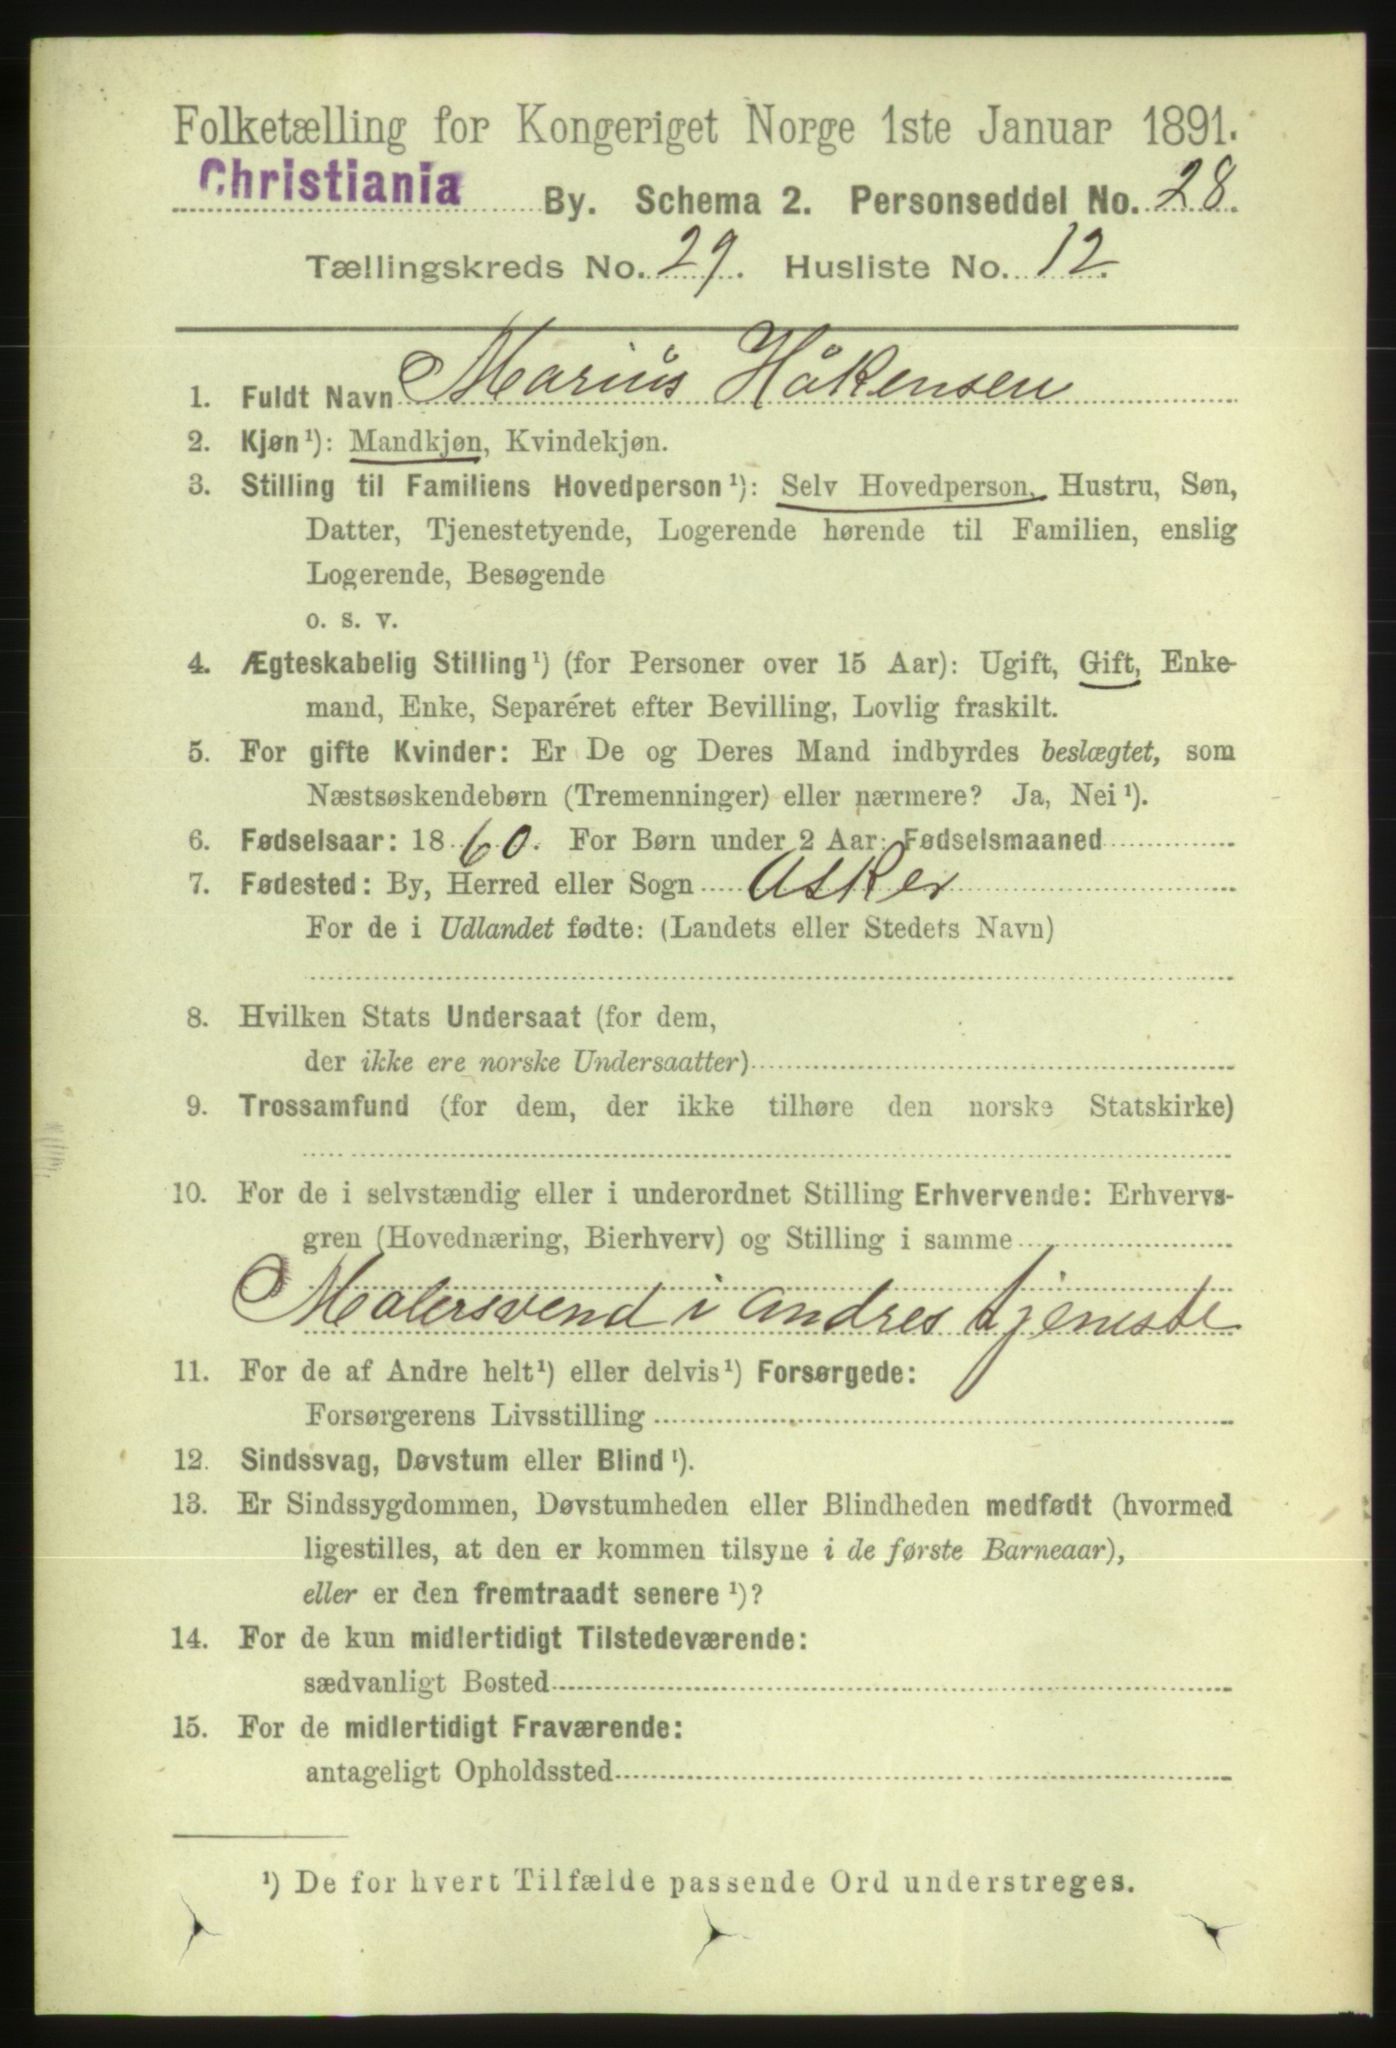 Folketælling for Kongeriget Norge 1ste Januar 1891.
Christiania By. Schema 2. Personseddel No. 28.
Tællingskreds No. 29. Husliste No. 12.
1. Fuldt Navn Marius Håkensen
2. Kjøn¹): Mandkjøn, Kvindekjøn.
3. Stilling til Familiens Hovedperson¹): Selv Hovedperson, Hustru, Søn,
Datter, Tjenestetyende, Logerende hørende til Familien, enslig
Logerende, Besøgende
o. s. v.
4. Ægteskabelig Stilling¹) (for Personer over 15 Aar): Ugift, Gift, Enke-
mand, Enke, Separéret efter Bevilling, Lovlig fraskilt.
5. For gifte Kvinder: Er De og Deres Mand indbyrdes beslægtet, som
Næstsøskendebørn (Tremenninger) eller nærmere? Ja, Nei¹).
6. Fødselsaar: 1860. For Børn under 2 Aar: Fødselsmaaned
7. Fødested: By, Herred eller Sogn Asker
For de i Udlandet fødte: (Landets eller Stedets Navn)
8. Hvilken Stats Undersaat (for dem,
der ikke ere norske Undersaatter)
9. Trossamfund (for dem, der ikke tilhøre den norske Statskirke)
10. For de i selvstændig eller i underordnet Stilling Erhvervende: Erhvervs-
gren (Hovednæring, Bierhverv) og Stilling i samme
Malersvend i andres tjeneste
11. For de af Andre helt¹) eller delvis¹) Forsørgede:
Forsørgerens Livsstilling
12. Sindssvag, Døvstum eller Blind¹).
13. Er Sindssygdommen, Døvstumheden eller Blindheden medfødt (hvormed
ligestilles, at den er kommen tilsyne i de første Barneaar),
eller er den fremtraadt senere¹)?
14. For de kun midlertidigt Tilstedeværende:
sædvanligt Bosted
15. For de midlertidigt Fraværende:
antageligt Opholdssted
¹) De for hvert Tilfælde passende Ord understreges.